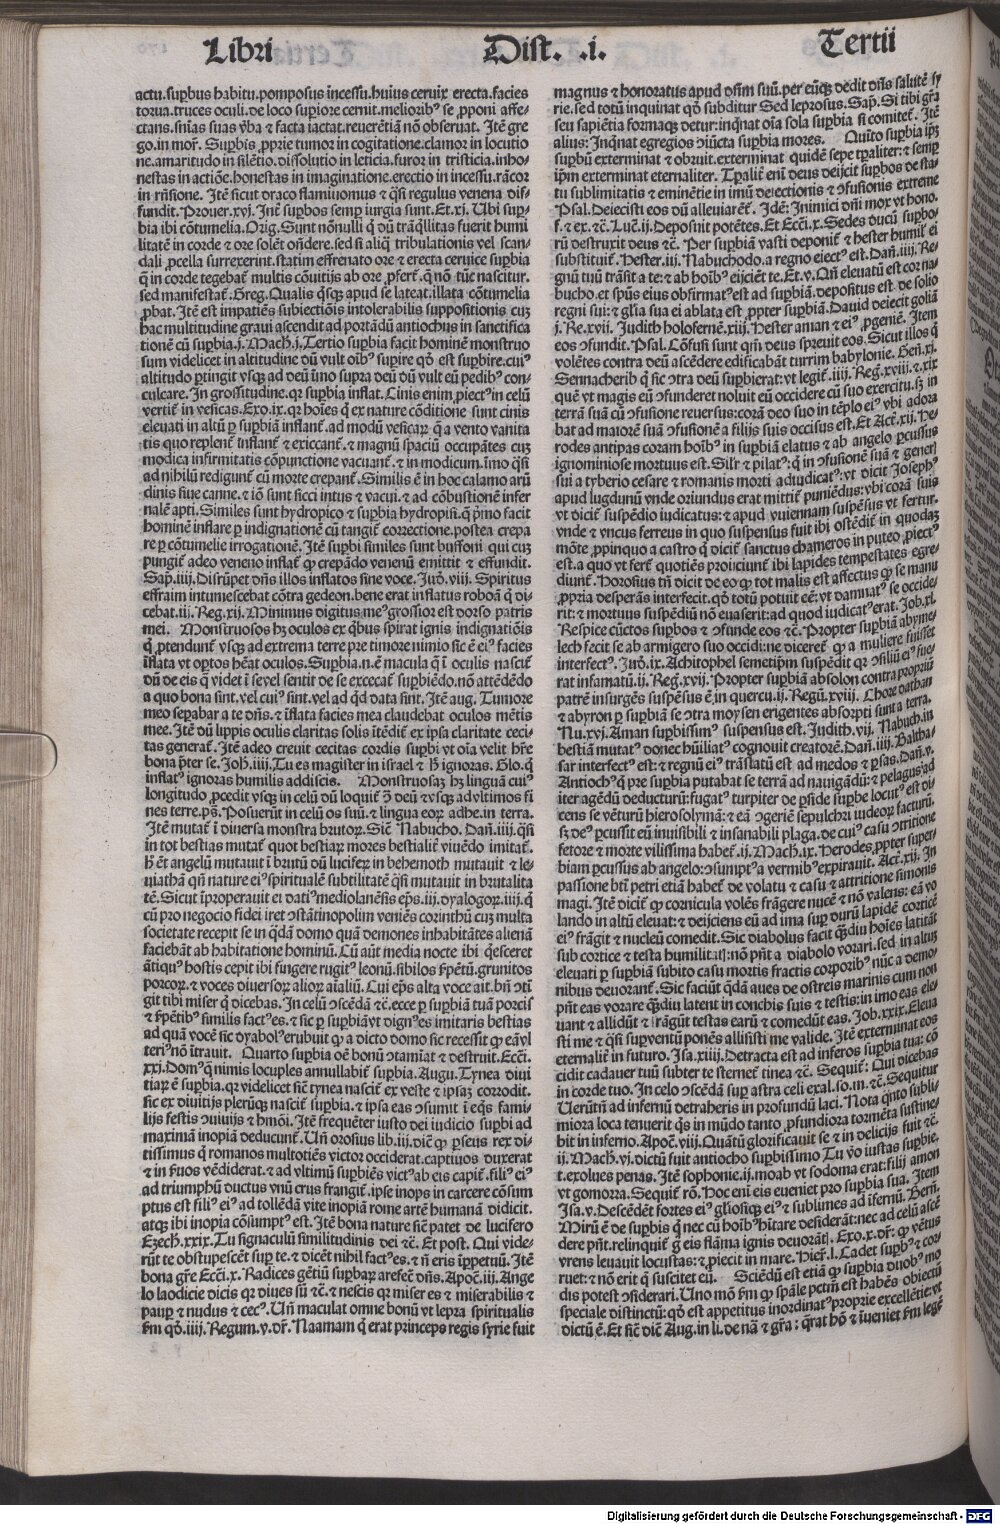 Libri Dist. .i. Tertii
actu.suꝑbus habitu.pomposus incessu.huius ceruix erecta.facies
torua.truces oculi.de loco suꝑiore cernit.melioribꝰ se ꝓponi affe-
ctans.snĩas suas v̓ba ⁊ facta iactat.reuerẽtiã nõ obseruat. Itẽ gre
go.in moral̓. Suꝑbis ꝓprie tumor in cogitatione.clamor in locutio
ne.amaritudo in silẽtio.dissolutio in leticia.furor in tristicia.inho-
nestas in actiõe.honestas in imaginatione.erectio in incessu.rãcor
in rñsione. Itẽ sicut draco flammiuomus ⁊ q̃si regulus venena dif-
fundit. Prouer.xvj. Int̓ suꝑbos semꝑ iurgia sunt. Et.xj. Ubi suꝑ-
bia ibi cõtumelia. Orig. Sunt nõnulli q̇ dũ trãq̇llitas fuerit humi
litatẽ in corde ⁊ ore solẽt oñdere.sed si aliq̃ tribulationis vel scan-
dali ꝓcella surrexerint.statim effrenato ore ⁊ erecta ceruice suꝑbia
q̃ in corde tegebat̃ multis cõuitijs ab ore ꝓfert̃.q̃ nõ tũc nascitur.
sed manifestat̃. Greg. Qualis q̇sq̢ apud se lateat.illata cõtumelia
ꝓbat. Itẽ est impatiẽs subiectiõis intolerabilis suppositionis cuꝫ
hac multitudine graui ascendit ad portãdũ antiochus in sanctifica
tionẽ cũ suꝑbia.j. Mach.j. Tertio suꝑbia facit hominẽ monstruo
sum videlicet in altitudine dũ vult oĩbꝰ suꝑire qđ est suꝑbire.cuiꝰ
altitudo ꝑtingit vsq̢ ad deũ ĩmo supra deũ dũ vult eũ pedibꝰ con-
culcare. In grossitudine.qꝛ suꝑbia inflat. Cinis enim ꝓiectꝰ in celũ
vertit̃ in vesicas. Exo.ix.qꝛ hoĩes q̇ ex nature cõditione sunt cinis
eleuati in altũ ꝑ suꝑbiã inflant̃.ad modũ vesicaꝝ q̃ a vento vanita
tis quo replent̃ inflant̃ ⁊ exiccant̃.⁊ magnũ spaciũ occupãtes cuꝫ
modica infirmitatis cõpunctione vacuant̃.⁊ in modicum.ĩmo q̃si
ad nihilũ redigunt̃ cũ morte crepant̃. Similis ẽ in hoc calamo arũ
dinis siue canne.⁊ iõ sunt sicci intus ⁊ vacui.⁊ ad cõbustionẽ infer
nalẽ apti. Similes sunt hydropico ⁊ suꝑbia hydropisi.q̃ pͥmo facit
hominẽ inflare ꝑ indignationẽ cũ tangit̃ correctione.postea crepa
re ꝑ cõtumelie irrogationẽ. Itẽ suꝑbi similes sunt buffoni qui cuꝫ
pungit̃ adeo veneno inflat̃ ꝙ crepãdo venenũ emittit ⁊ effundit.
Sap̃.iiij. Disrũpet dñs illos inflatos sine voce. Iud̓.viij. Spiritus
effraim intumescebat cõtra gedeon.bene erat inflatus roboã q̇ di-
cebat.iij. Reg.xij. Minimus digitus meꝰ grossior est dorso patris
mei. Monstruosos hꝫ oculos ex q̇bus spirat ignis indignatiõis
q̇ ꝓtendunt̃ vsq̢ ad extrema terre pre timore nimio sic ẽ eiꝰ facies
ĩflata vt optos hẽat oculos. Suꝑbia.n.ẽ macula q̃ ĩ oculis nascit̃
dũ de eis q̃ videt ĩ se vel sentit de se excecat̃ suꝑbiẽdo.nõ attẽdẽdo
a quo bona sint.vel cuiꝰ sint.vel ad qͥd data sint. Itẽ aug. Tumore
meo seꝑabar a te dñs.⁊ ĩflata facies mea claudebat oculos mẽtis
mee. Itẽ dũ lippis oculis claritas solis itẽdit̃ ex ipsa claritate ceci-
tas generat̃. Itẽ adeo creuit cecitas cordis suꝑbi vt oĩa velit hr̃e
bona pret̓ se. Joh̃.iiij. Tu es magister in israel ⁊ h̓ ignoras. Glo.q̇
inflatꝰ ignoras humilis addiscis. Monstruosaꝫ hꝫ linguã cuiꝰ
longitudo ꝓcedit vsq̢ in celũ dũ loquit̃ ↄ̃ deũ ⁊ vsq̢ ad vltimos fi
nes terre.ps̃. Posuerũt in celũ os suũ.⁊ lingua eoꝝ adhe.in terra.
Itẽ mutat̃ ĩ diuersa monstra brutoꝝ. Sic̃ Nabucho. Dañ.iiij.q̃si
in tot bestias mutat̃ quot bestiaꝝ mores bestialit̓ viuẽdo imitat̃.
h̓ ẽt angelũ mutauit ĩ brutũ dũ luciferꝫ in behemoth mutauit ⁊ le-
uiathã qñ nature eiꝰ spiritualẽ subtilitatẽ q̃si mutauit in brutalita
tẽ. Sicut ĩproperauit ei datiꝰ mediolanẽsis ep̃s.iij.dyalogoꝝ.iiij.q̇
cũ pro negocio fidei iret ↄstãtinopolim veniẽs corinthũ cuꝫ multa
societate recepit se in q̃dã domo quã demones inhabitãtes alienã
faciebãt ab habitatione hominũ. Cũ aũt media nocte ibi q̇esceret
ãtiqͥꝰ hostis cepit ibi fingere rugitꝰ leonũ.sibilos ẜpẽtũ.grunitos
porcoꝝ.⁊ voces diuersoꝝ alioꝝ aĩaliũ. Cui ep̃s alta voce ait.bñ ↄti
git tibi miser q̇ dicebas. In celũ ↄscẽdã ⁊c̃.ecce ꝑ suꝑbiã tuã porcis
⁊ ẜpẽtibꝰ similis factꝰ es.⁊ sic ꝑ suꝑbiã vt dignꝰ es imitaris bestias
ad quã vocẽ sic dyabolꝰ erubuit ꝙ a dicto domo sic recessit ꝙ eã vl
teriꝰ nõ ĩtrauit. Quarto suꝑbia oẽ bonũ ↄtamiat ⁊ destruit. Ecc̃i.
xxj. Domꝰ q̃ nimis locuples annullabit̃ suꝑbia. Augu. Tynea diui
tiaꝝ ẽ suꝑbia.qꝛ videlicet sic̃ tynea nascit̃ ex veste ⁊ ipsaꝫ corrodit.
sic ex diuitijs plerũq̢ nascit̃ suꝑbia.⁊ ipsa eas ↄsumit ĩ eq̇s fami-
lijs festis ↄuiuijs ⁊ hmõi. Itẽ frequẽter iusto dei iudicio suꝑbi ad
maximã inopiã deducunt̃. Uñ orosius lib.iij.dic̃ ꝙ ꝑseus rex di-
tissimus q̇ romanos multotiẽs victor occiderat.captiuos duxerat
⁊ in ẜuos vẽdiderat.⁊ ad vltimũ suꝑbiẽs victꝰ ab eis capit̃.filiꝰ eiꝰ
ad triumphũ ductus vnũ crus frangit̃.ipse inops in carcere cõsum
ptus est filiꝰ eiꝰ ad tollẽdã vite inopiã rome artẽ humanã didicit.
atq̢ ibi inopia cõsumptꝰ est. Itẽ bona nature sic̃ patet de lucifero
Ezech̃.xxix. Tu signaculũ similitudinis dei ⁊c̃. Et post. Qui vide-
rũt te obstupescẽt suꝑ te.⁊ dicẽt nihil factꝰ es.⁊ ñ eris ĩꝑpetuũ. Itẽ
bona gr̃e Ecc̃i.x. Radices gẽtiũ suꝑbaꝝ arefec̃ dñs. Apoc̃.iij. Ange
lo laodicie dicis qꝛ diues sũ ⁊c̃.⁊ nescis qꝛ miser es ⁊ miserabilis ⁊
pauꝑ ⁊ nudus ⁊ cecꝰ. Uñ maculat omne bonũ vt lepra spiritualis
ẜm qđ.iiij. Regum.v.dr̃. Naamam q̇ erat princeps regis syrie fuit
magnus ⁊ honoratus apud dñm suũ.per eũq̢ dedit dñs salutẽ sy
rie.sed totũ inquinat qđ subditur Sed leprosus. Sap̃. Si tibi gr̃a
seu sapiẽtia formaq̢ detur:inq̇nat oĩa sola suꝑbia si comitet̃. Itẽ
alius: Inq̇nat egregios ↄiũcta suꝑbia mores. Quĩto suꝑbia ip̃ꝫ
suꝑbũ exterminat ⁊ obruit.exterminat quidẽ sepe tꝑaliter:⁊ semꝑ
ip̃m exterminat eternaliter. Tꝑalit̓ eni deus deijcit suꝑbos de sta-
tu sublimitatis ⁊ eminẽtie in imũ deiectionis ⁊ ↄfusionis extreme
Psal. Deiecisti eos dũ alleuiarẽt̃. Idẽ: Inimici dñi mox vt hono.
f.⁊ ex.⁊c̃. Luc̃.ij. Deposuit potẽtes. Et Ecc̃i.x. Sedes ducũ suꝑbo-
rũ destruxit deus ⁊c̃. Per suꝑbiã vasti deponit̃ ⁊ hester humilꝰ ei
substituit̃. Hester.iij. Nabuchodo.a regno eiectꝰ est. Dañ.iiij. Re-
gnũ tuũ trãsit a te:⁊ ab hoĩbꝰ eijciẽt te. Et.v. Qñ eleuatũ est cor na-
bucho.et sp̃us eius obfirmatꝰ est ad suꝑbiã.depositus est de solio
regni sui:⁊ gl̃ia sua ei ablata est ꝓpter suꝑbiã. Dauid deiecit goliã
j. Re.xvij. Judith holofernẽ.xiij. Hester aman ⁊ eiꝰ ꝓgeniẽ. Item
eos ↄfundit. Psal. Cõfusi sunt qm̃ deus spreuit eos. Sicut illos q̇
volẽtes contra deũ ascẽdere edificabãt turrim babylonie. Geñ.xj.
Sennacherib q̇ sic ↄtra deũ suꝑbierat:vt legit̃.iiij. Reg̃.xviij.⁊ xix
quẽ vt magis eũ ↄfunderet noluit eũ occidere cũ suo exercitu.sꝫ in
terrã suã cũ ↄfusione reuersus:corã deo suo in tẽplo eiꝰ vbi adora
bat ad maiorẽ suã ↄfusionẽ a filijs suis occisus est. Et Act̃.xij. He-
rodes antipas coram hoĩbꝰ in suꝑbiã elatus ⁊ ab angelo ꝑcussus
ignominiose mortuus est. Sil̓r ⁊ pilatꝰ:q̇ in ↄfusionẽ suã ⁊ gener̃
sui a tyberio cesare ⁊ romanis morti adiudicatꝰ:vt dicit Josephꝰ
apud lugdunũ vnde oriundus erat mittit̃ puniẽdus:vbi corã suis
vt dicit̃ suspẽdio iudicatus:⁊ apud vuiennam suspẽsus vt fertur.
vnde ⁊ vncus ferreus in quo suspensus fuit ibi ostẽdit̃ in quodaꝫ
mõte ꝓpinquo a castro q̇ dicit̃ sanctus chameros in puteo ꝓiectꝰ
est.a quo vt fert̃ quotiẽs proijciunt̃ ibi lapides tempestates egre-
diunt̃. Horosius tñ dicit de eo qꝙ tot malis est affectus ꝙ se manu
ꝓpria desperãs interfecit.qđ totũ potuit eẽ:vt damnatꝰ se occide-
rit:⁊ mortuus suspẽdiũ nõ euaserit:ad quod iudicatꝰ erat. Job.xl.
Respice cũctos suꝑbos ⁊ ↄfunde eos ⁊c̃. Propter suꝑbiã abyme-
lech fecit se ab armigero suo occidi:ne diceret̃ ꝙ a muliere fuisset
interfectꝰ. Iud̓.ix. Achitophel semetip̃m suspẽdit qꝛ ↄsiliũ eiꝰ fue-
rat infamatũ.ij. Reg̃.xvij. Propter suꝑbiã absolon contra propriũ
patrẽ insurgẽs suspẽsus ẽ in quercu.ij. Regũ.xviij. Chore dathan
⁊ abyron ꝑ suꝑbiã se ↄtra moysen erigentes absorpti sunt a terra.
Nu.xvj. Aman suꝑbissimꝰ suspensus est. Judith.vij. Nabuch.in
bestiã mutatꝰ donec hũiliatꝰ cognouit creatorẽ. Dañ.iiij. Baltha-
sar interfectꝰ est:⁊ regnũ eiꝰ trãslatũ est ad medos ⁊ ꝑsas. Dañ.v.
Antiochꝰ q̇ pre suꝑbia putabat se terrã ad nauigãdũ:⁊ pelagus ad
iter agẽdũ deducturũ:fugatꝰ turpiter de ꝑside suꝑbe locutꝰ est di-
cens se vẽturũ hierosolymã:⁊ eã ↄgeriẽ sepulchri iudeoꝝ facturũ.
sꝫ deꝰ ꝑcussit eũ inuisibili ⁊ insanabili plaga.de cuiꝰ casu ↄtritione
fetore ⁊ morte vilissima habet̃.ij. Mach.ix. Herodes ꝓpter super-
biam ꝑcussus ab angelo:ↄsumptꝰ a vermibꝰ expirauit. Act̃.xij. In
passione bt̃i petri etiã habet̃ de volatu ⁊ casu ⁊ attritione simonis
magi. Itẽ dicit̃ ꝙ cornicula volẽs frãgere nucẽ ⁊ nõ valens:eã vo
lando in altũ eleuat:⁊ deijciens eũ ad ima suꝑ durũ lapidẽ corticẽ
eiꝰ frãgit ⁊ nucleũ comedit. Sic diabolus facit q̃ndiu hoĩes latitãt
sub cortice ⁊ testa humilitatis:nõ pñt a diabolo vorari.sed in altuꝫ
eleuati ꝑ suꝑbiã subito casu mortis fractis corporibꝰ nũc a demo-
nibus deuorant̃. Sic faciũt q̃dã aues de ostreis marinis cum non
pñt eas vorare q̃ndiu latent in conchis suis ⁊ testis:in imo eas ele-
uant ⁊ allidũt ⁊ frãgũt testas earũ ⁊ comedũt eas. Job.xxix. Eleua
sti me ⁊ q̃si suꝑ ventũ ponẽs allisisti me valide. Itẽ exterminat eos
eternalit̓ in futuro. Isa.xiiij. Detracta est ad inferos suꝑbia tua: cõ
cidit cadauer tuũ subter te sternet̃ tinea ⁊c̃. Sequit̃: Qui dicebas
in corde tuo. In celo ↄscẽdã suꝑ astra celi exal.so.m.⁊c̃. Sequitur
Uerũtñ ad infernũ detraheris in profundũ laci. Nota qñto subli-
miora loca tenuerit q̇s in mũdo tanto ꝓfundiora tormẽta sustine-
bit in inferno. Apoc̃.viij. Quãtũ glorificauit se ⁊ in delicijs fuit ⁊c̃.
ij. Mach.vj.dictũ fuit antiocho suꝑbissimo Tu v̓o iustas suꝑbie.
t.exolues penas. Itẽ sophonie.ij.moab vt sodoma erat:filij amon
vt gomorra. Sequit̃ rõ. Hoc eni eis eueniet pro suꝑbia sua. Item
Isa.v. Descẽdẽt fortes eiꝰ gl̃iosiq̢ eiꝰ ⁊ sublimes ad ĩfernũ. Bern̓.
Mirũ ẽ de suꝑbis q̇ nec cũ hoĩbꝰ hĩtare desiderãt:nec ad celũ ascẽ
dere pñt.relinquit̃ g̊ eis flãma ignis deuorãs. Exo.x.dr̃: ꝙ vẽtus
vrens leuauit locustas:⁊ ꝓiecit in mare. Hier̃.l. Cadet suꝑbꝰ ⁊ cor-
ruet:⁊ nõ erit q̇ suscitet eũ. Sciẽdũ est etiã ꝙ suꝑbia duobꝰ mo
dis potest ↄsiderari. Uno mõ ẜm ꝙ sp̃ale pctm̃ est habẽs obiectũ
speciale distinctũ:qđ est appetitus inordinatꝰ proprie excellẽtie:vt
dictũ ẽ. Et sic̃ dic̃ Aug.in li.de nã ⁊ gr̃a: q̃rat hõ ⁊ ĩueniet ẜm legẽ
Digitalisierung gefördert durch die Deutsche Forschungsgemeinschaft - DFG